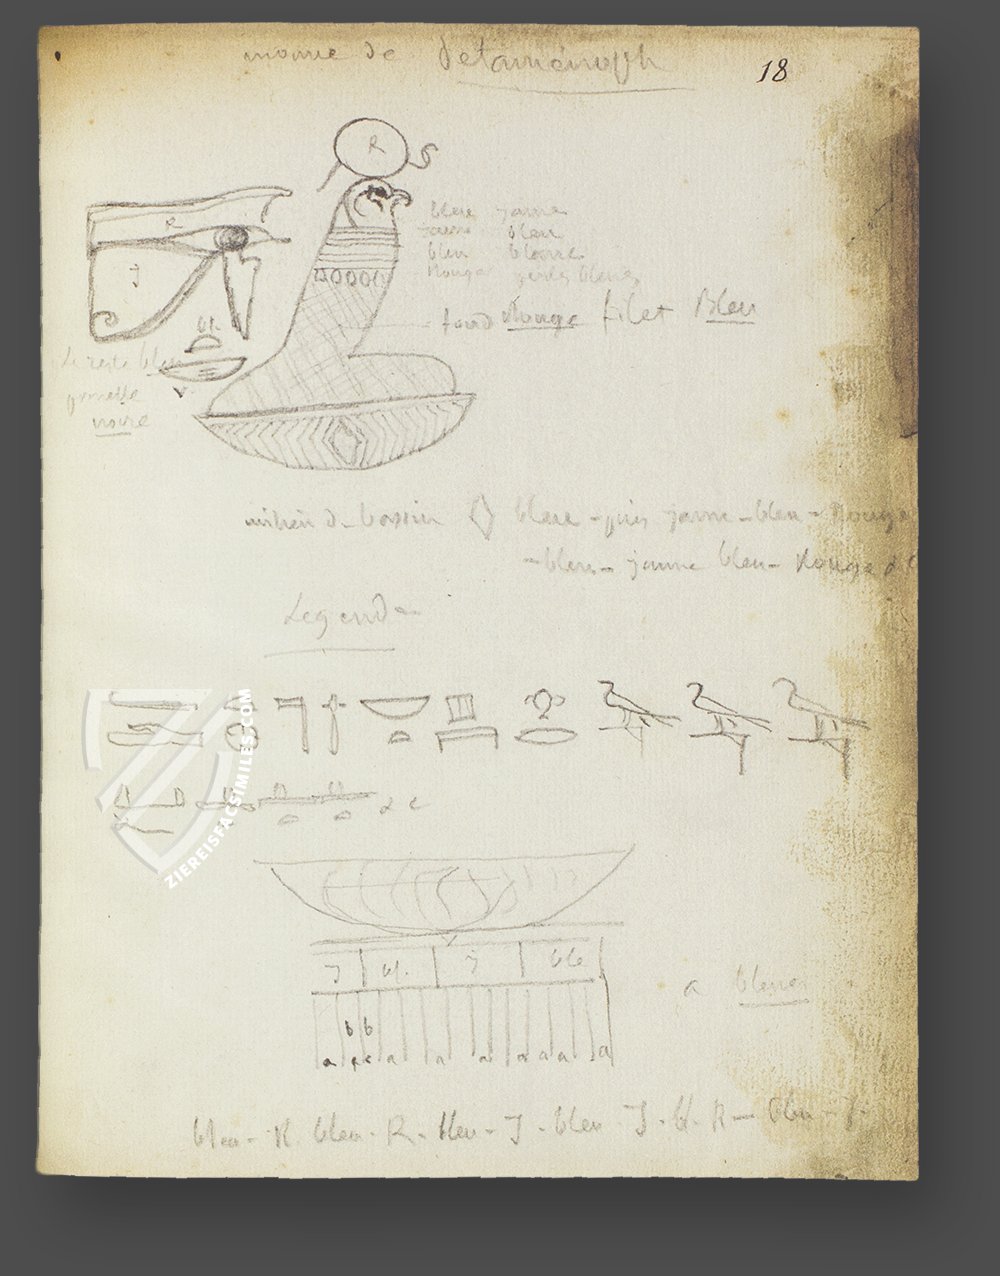 momie de Petaménoph
18
R
R
J
bl.
bleu jaune
jaune bleu
bleu blanc
Rouge perles bleues
fond Rouge filet Bleu
le reste bleu
prunelle
noire
milieu du bassin bleu - puis jaune - bleu - Rouge
- bleu - jaune bleu - Rouge &c
Legende
&c
J bl. J ble
b b
a a a a a a a a
a bleue
bleu - R. bleu - R - bleu - J - bleu - J - bl. R - bleu - J
ZIEREISFACSIMILES.COM